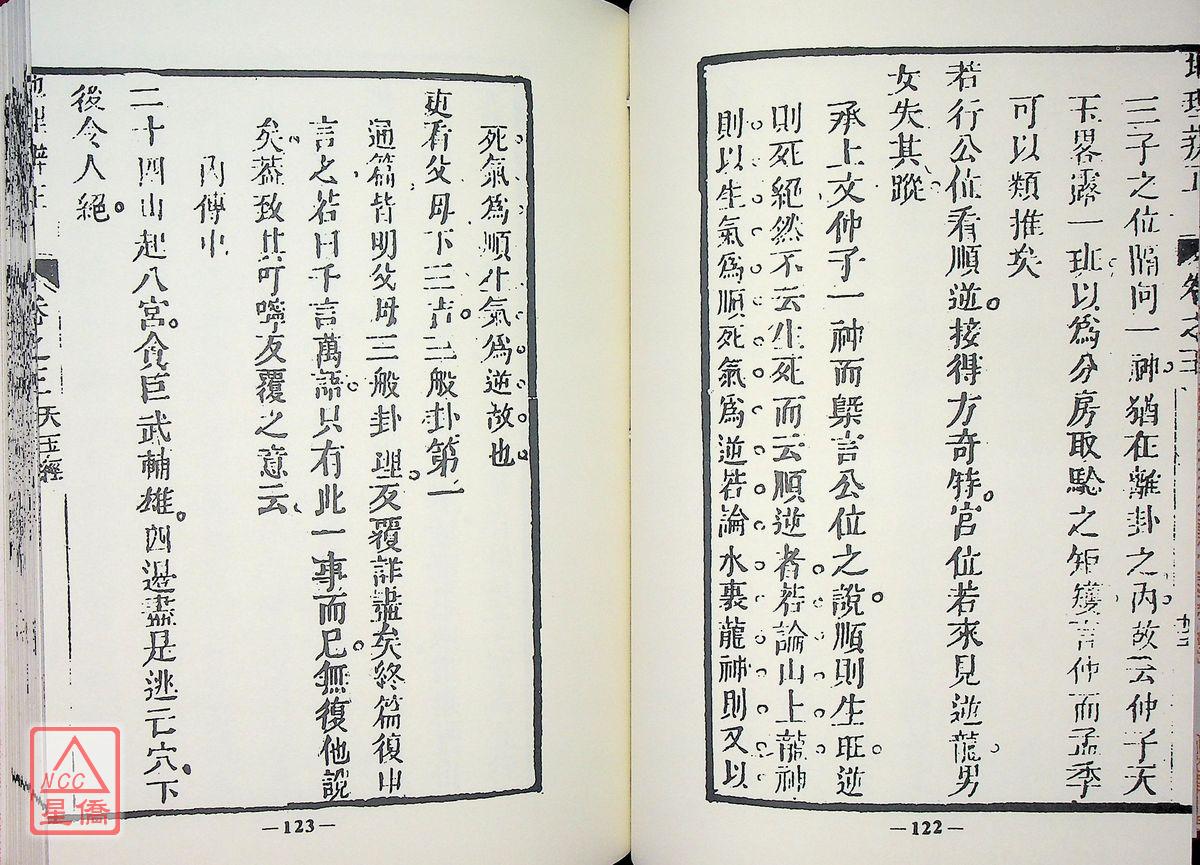 地理辨正 卷之三
三子之位隔向一神猶在離卦之內故云仲子天
玉畧露一班以爲分房取驗之矩矱言仲而孟季
可以類推矣
若行公位看順逆。接得方奇特。宫位若來見逆龍男
女失其蹤
承上文仲子一神而槩言公位之說順則生旺逆
則死絕然不云生死而云順逆者若論山上龍神
則以生氣爲順死氣爲逆若論水裏龍神則又以
—122—
死氣爲順生氣爲逆故也
更看父母下三吉。三般卦第一
通篇皆明父母三般卦理。反覆詳盡矣終篇復申
言之若曰千言萬語只有此一事而已無復他說
矣蓋致其叮嚀反覆之意云
內傳中
二十四山起八宮。貪巨武輔雄。四邊盡是逃亡穴。下
後令人絕。
地理辨正 卷之三 天玉經
—123—
NCC
星僑